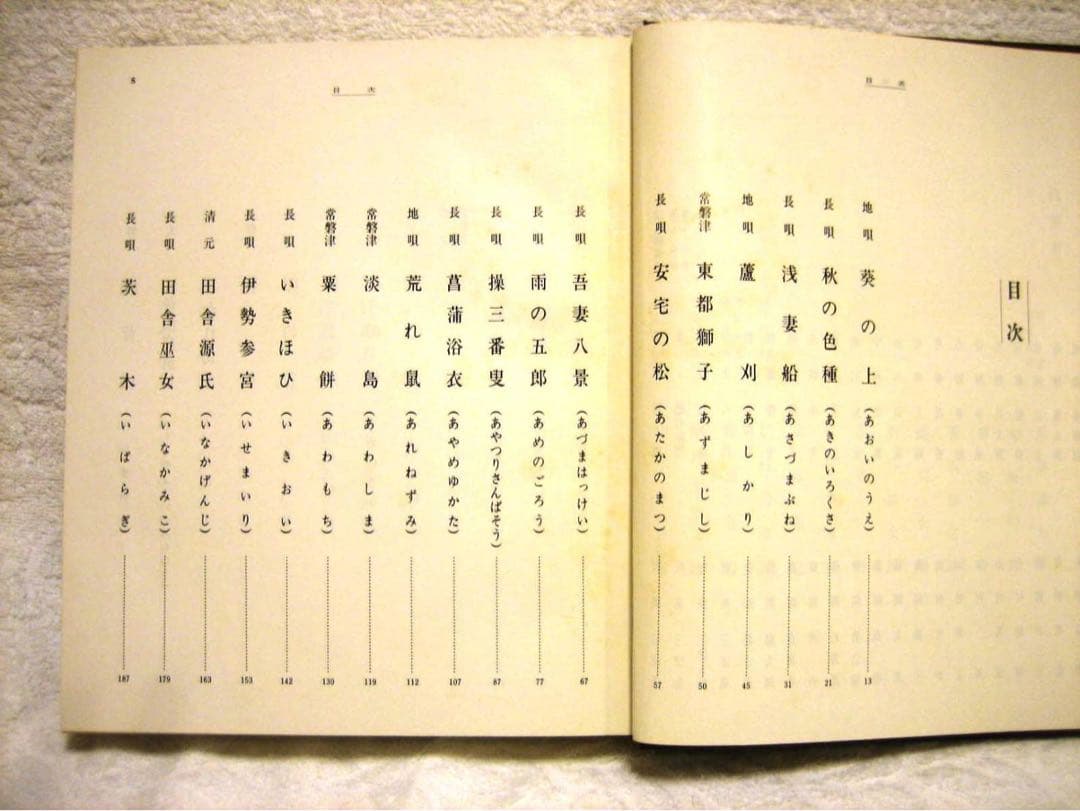 目次
目次
地唄 葵の上 (あおいのうえ) 13
長唄 秋の色種 (あきのいろくさ) 21
長唄 浅妻船 (あさづまぶね) 31
地唄 蘆刈 (あしかり) 45
常磐津 東都獅子 (あずまじし) 50
長唄 安宅の松 (あたかのまつ) 57
目次
8
長唄 吾妻八景 (あづまはっけい) 67
長唄 雨の五郎 (あめのごろう) 77
長唄 操三番叟 (あやつりさんばそう) 87
長唄 菖蒲浴衣 (あやめゆかた) 107
地唄 荒れ鼠 (あれねずみ) 112
常磐津 淡島 (あわしま) 119
常磐津 粟餅 (あわもち) 130
長唄 いきほひ (いきおい) 142
長唄 伊勢参宮 (いせまいり) 153
清元 田舎源氏 (いなかげんじ) 163
長唄 田舎巫女 (いなかみこ) 179
長唄 茨木 (いばらぎ) 187